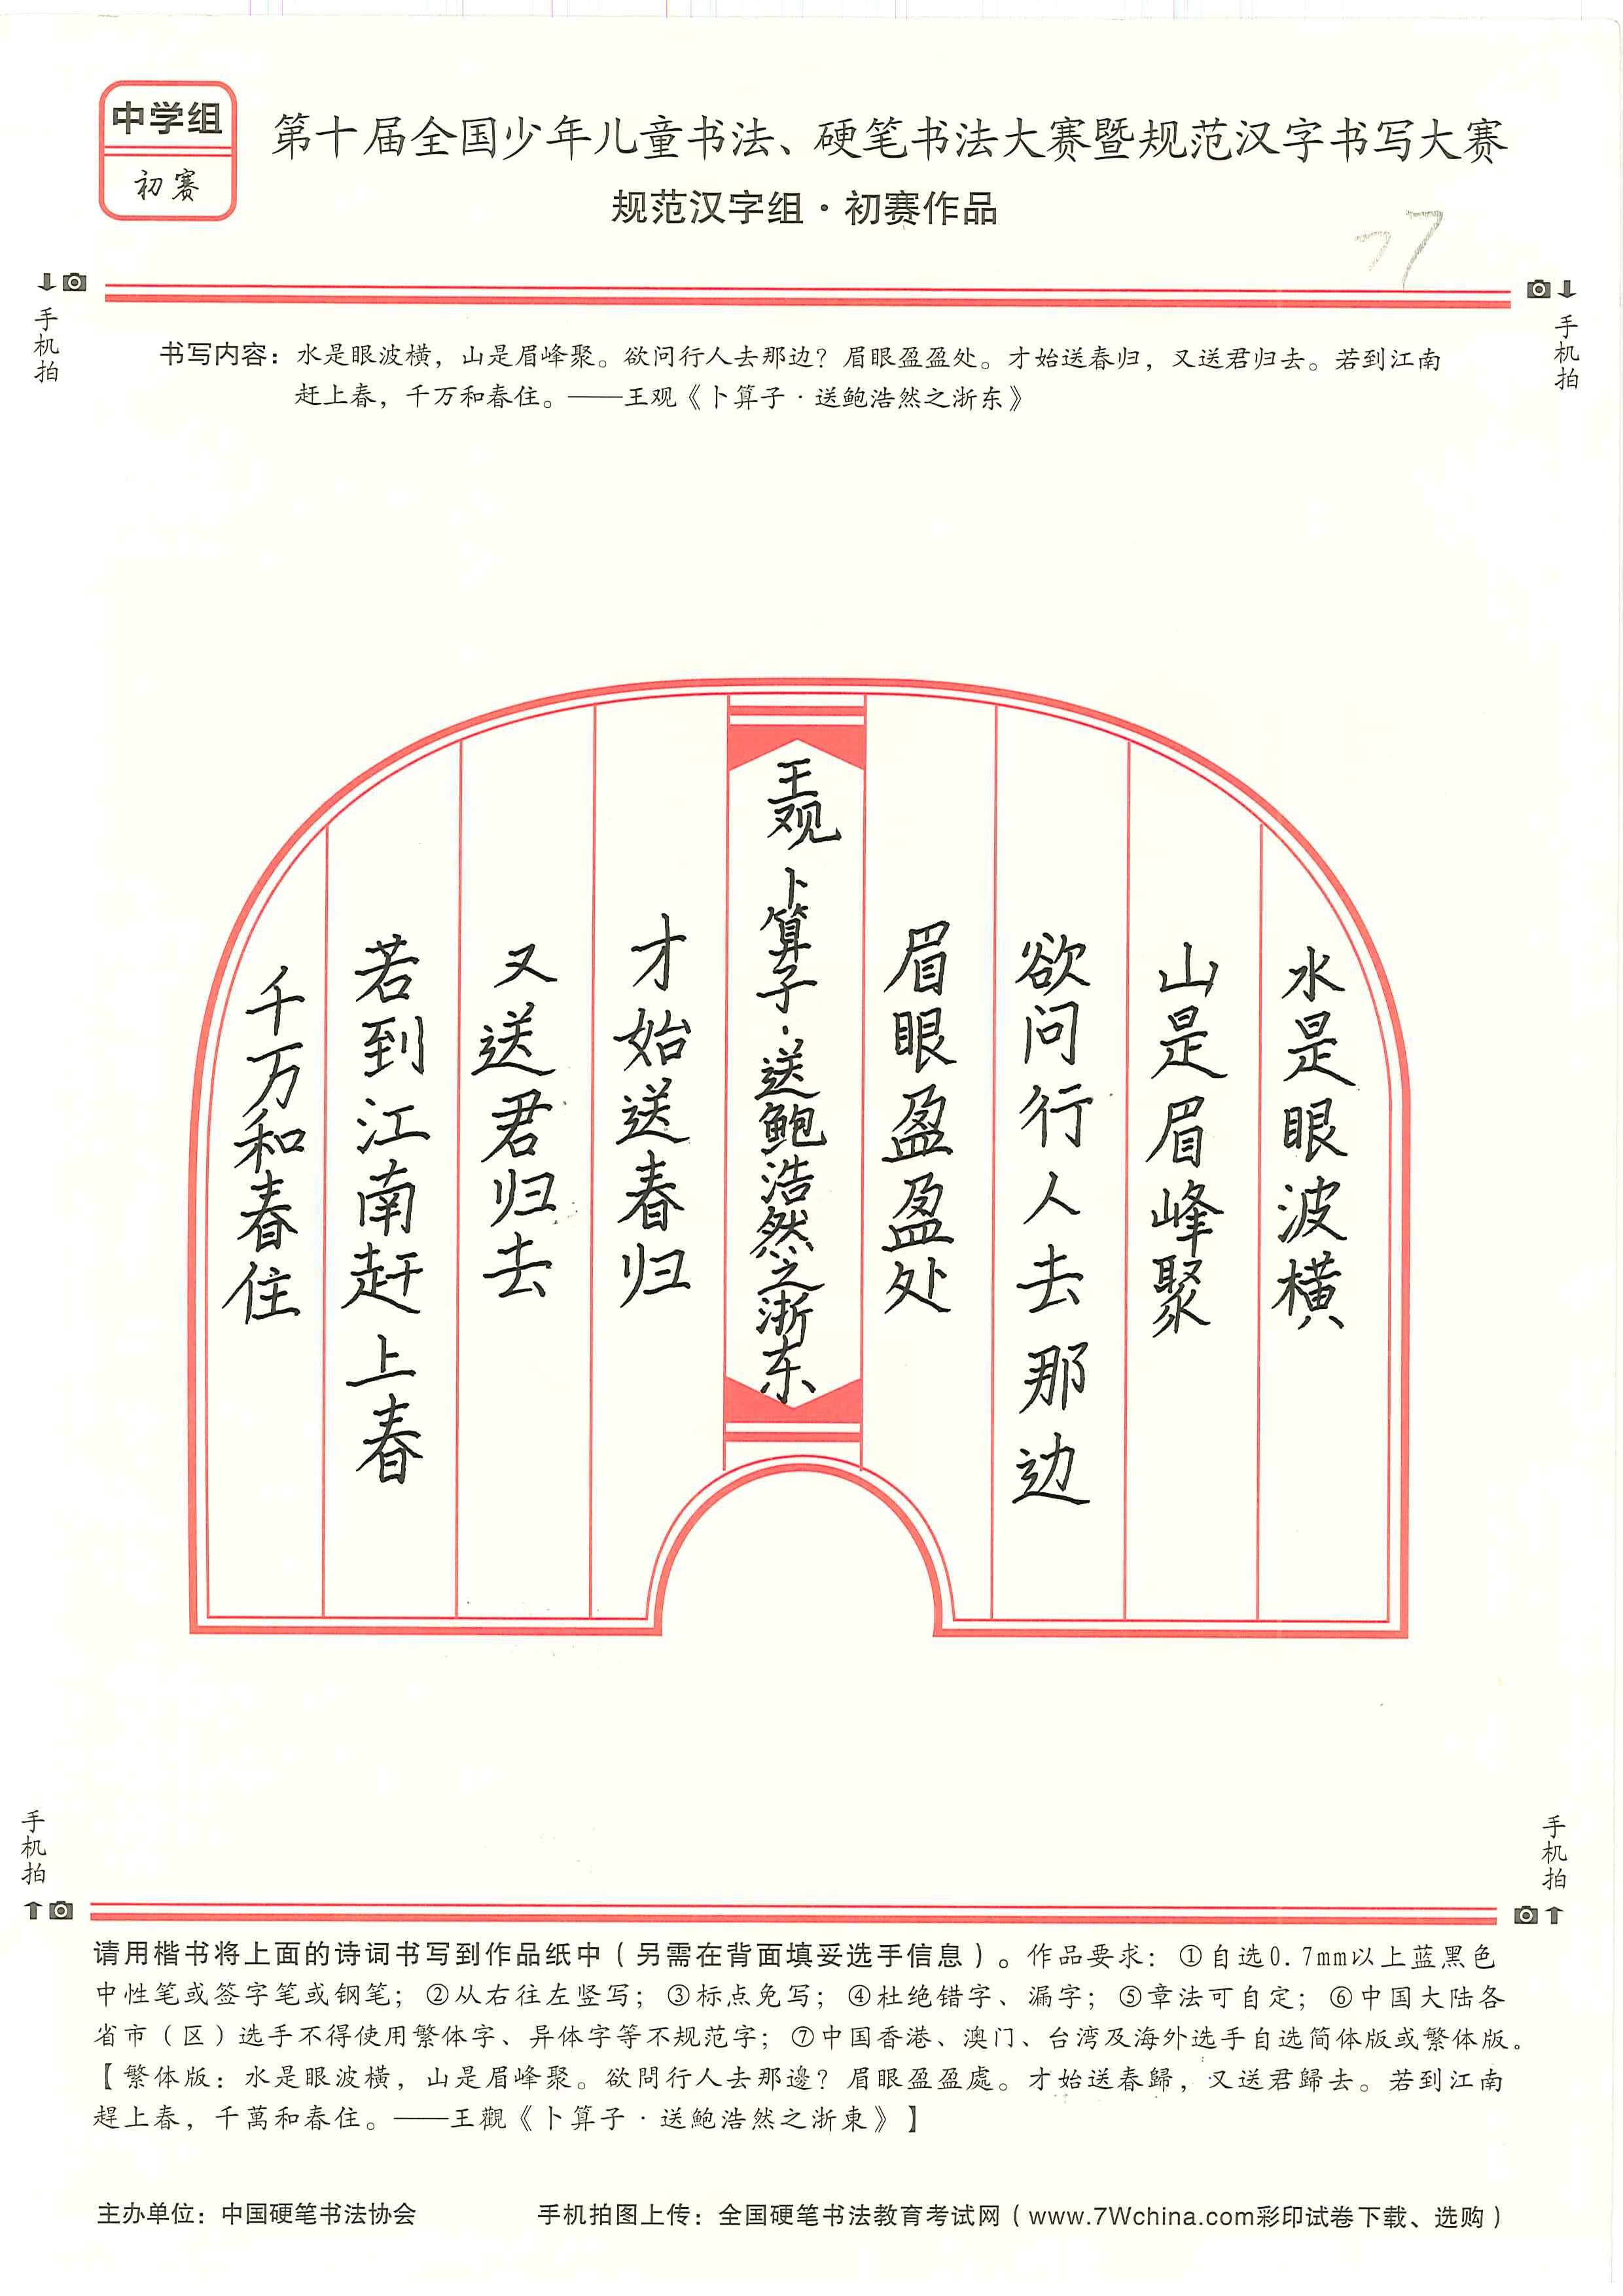 中学组
初赛
第十届全国少年儿童书法、硬笔书法大赛暨规范汉字书写大赛
规范汉字组·初赛作品
77
手机拍
手机拍
书写内容：水是眼波横，山是眉峰聚。欲问行人去那边？眉眼盈盈处。才始送春归，又送君归去。若到江南
赶上春，千万和春住。——王观《卜算子·送鲍浩然之浙东》
水是眼波横
山是眉峰聚
欲问行人去那边
眉眼盈盈处
王观 卜算子·送鲍浩然之浙东
才始送春归
又送君归去
若到江南赶上春
千万和春住
手机拍
手机拍
请用楷书将上面的诗词书写到作品纸中（另需在背面填妥选手信息）。作品要求：①自选0.7mm以上蓝黑色
中性笔或签字笔或钢笔；②从右往左竖写；③标点免写；④杜绝错字、漏字；⑤章法可自定；⑥中国大陆各
省市（区）选手不得使用繁体字、异体字等不规范字；⑦中国香港、澳门、台湾及海外选手自选简体版或繁体版。
【繁体版：水是眼波橫，山是眉峰聚。欲問行人去那邊？眉眼盈盈處。才始送春歸，又送君歸去。若到江南
趕上春，千萬和春住。——王觀《卜算子·送鮑浩然之浙東》】
主办单位：中国硬笔书法协会
手机拍图上传：全国硬笔书法教育考试网（www.7Wchina.com彩印试卷下载、选购）